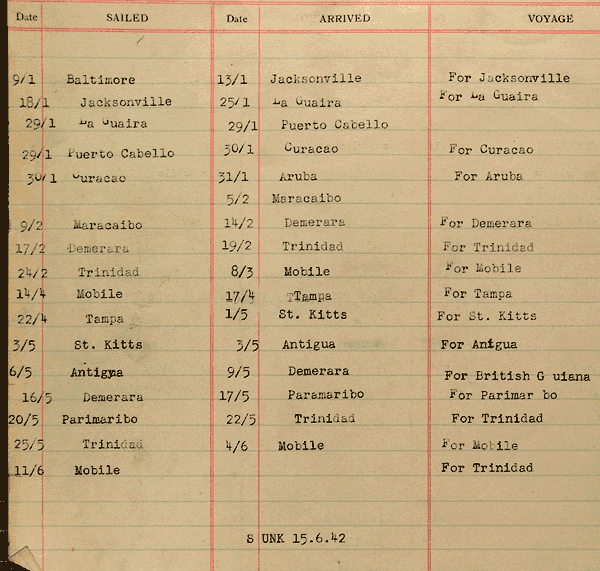 Date SAILED Date ARRIVED VOYAGE
9/1 Baltimore 13/1 Jacksonville For Jacksonville
18/1 Jacksonville 25/1 La Guaira For La Guaira
29/1 La Guaira 29/1 Puerto Cabello
29/1 Puerto Cabello 30/1 Curacao For Curacao
30/1 Curacao 31/1 Aruba For Aruba
5/2 Maracaibo
9/2 Maracaibo 14/2 Demerara For Demerara
17/2 Demerara 19/2 Trinidad For Trinidad
24/2 Trinidad 8/3 Mobile For Mobile
14/4 Mobile 17/4 TTampa For Tampa
22/4 Tampa 1/5 St. Kitts For St. Kitts
3/5 St. Kitts 3/5 Antigua For Antgua
6/5 Antigua 9/5 Demerara For British G uiana
16/5 Demerara 17/5 Paramaribo For Parimar bo
20/5 Parimaribo 22/5 Trinidad For Trinidad
25/5 Trinidad 4/6 Mobile For Mobile
11/6 Mobile For Trinidad
S UNK 15.6.42